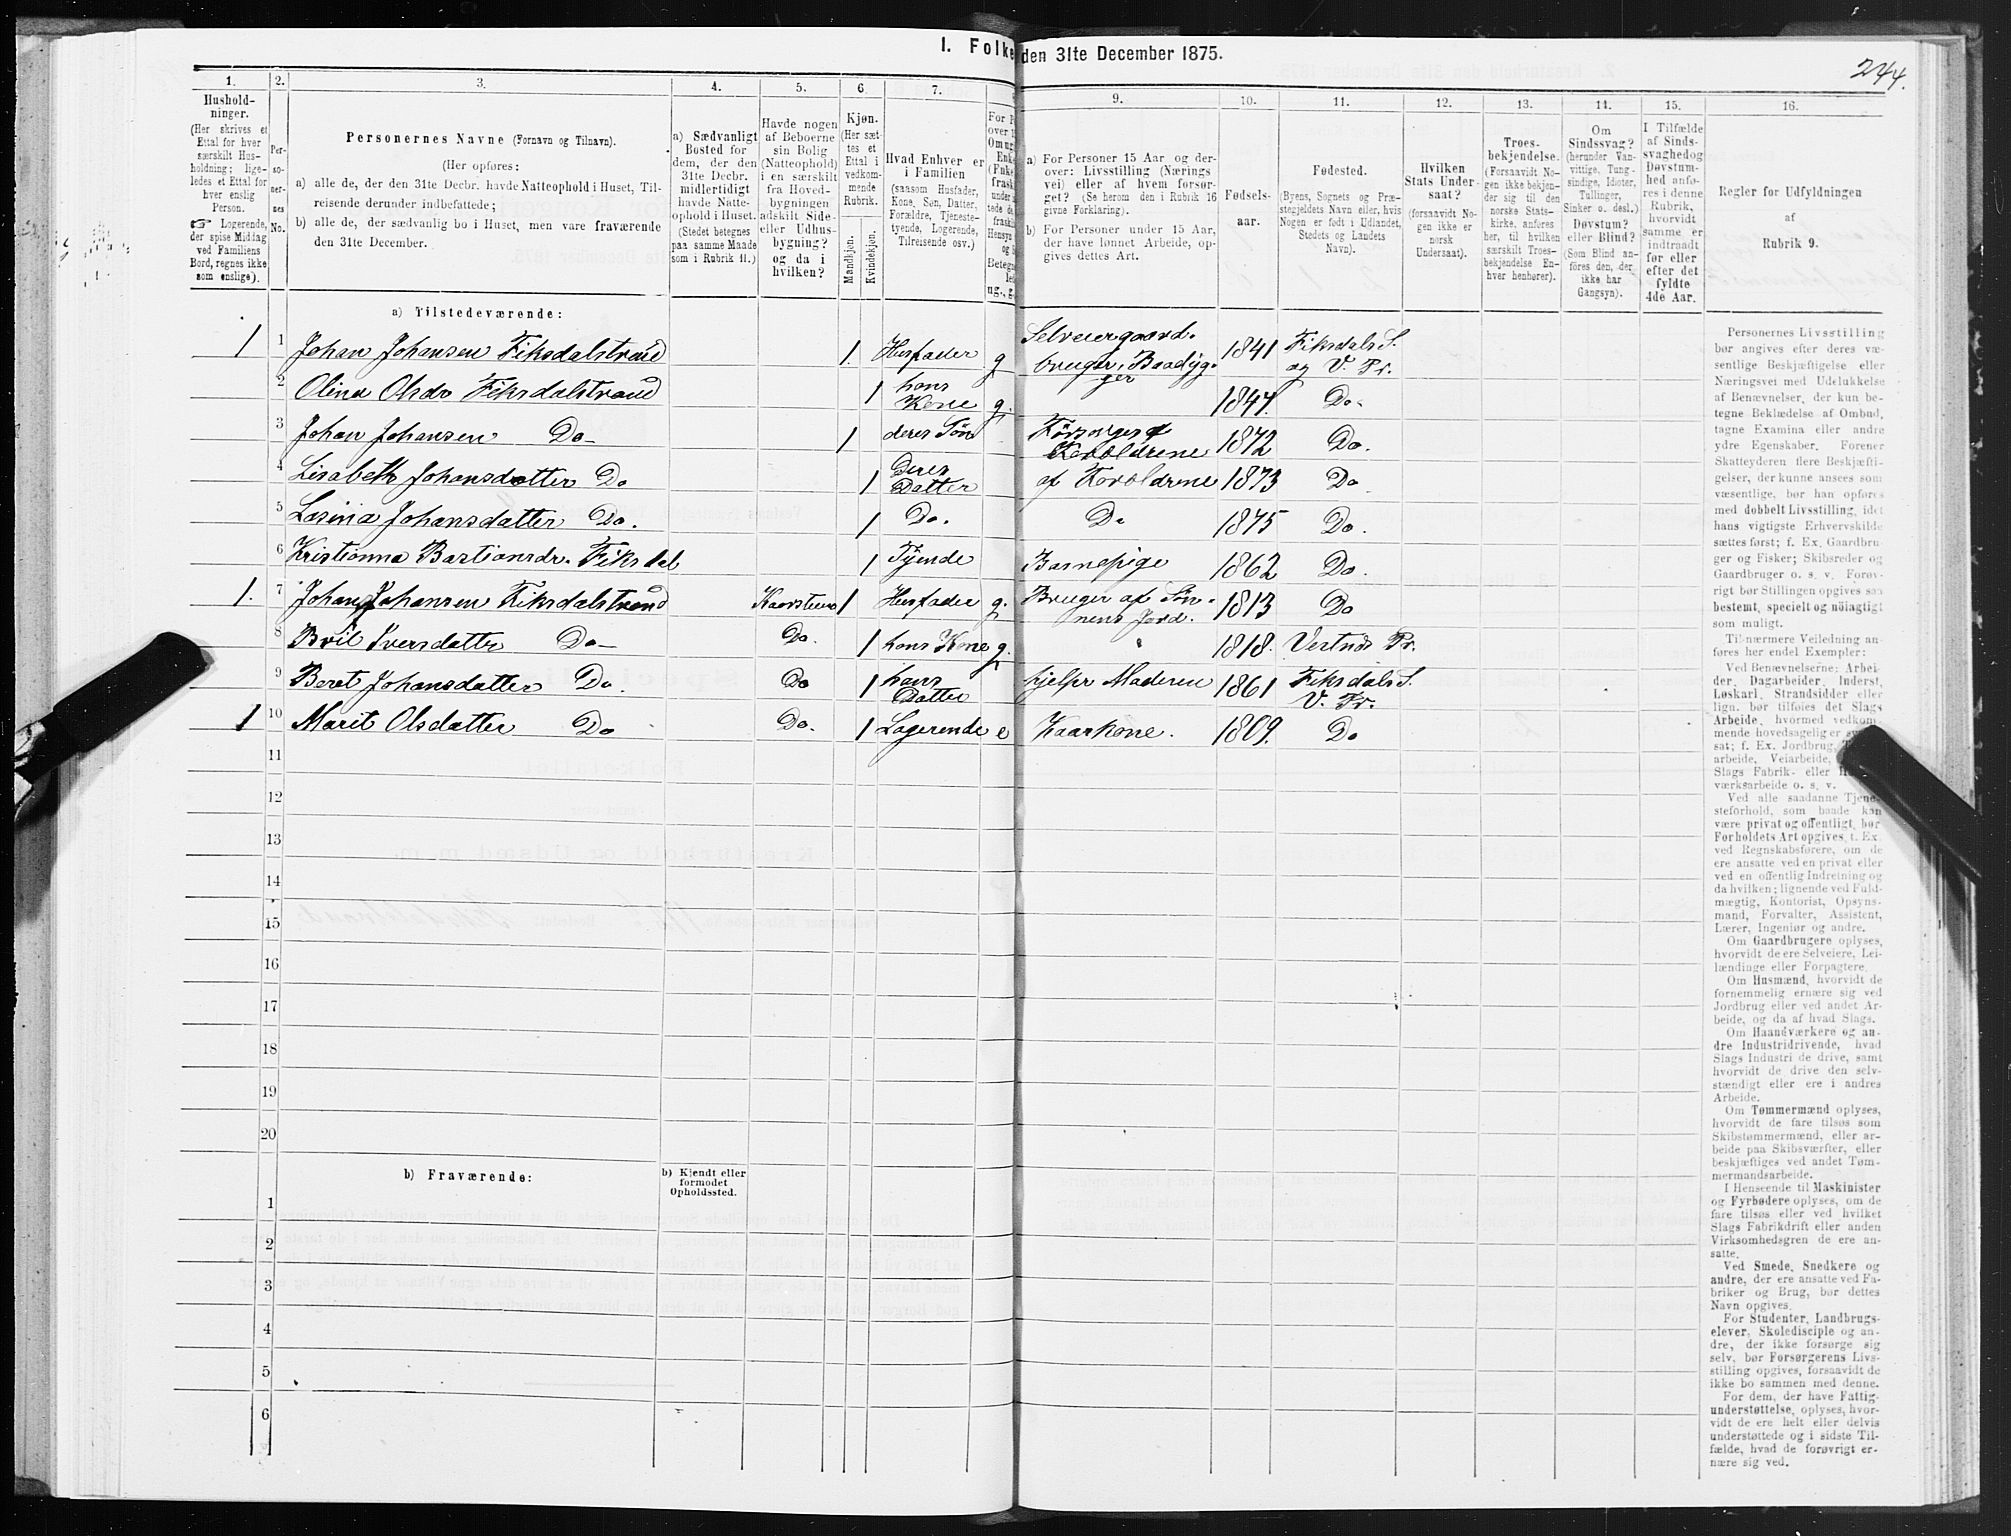 1. Folke den 31te December 1875.
244.
1. 2. 3. 4. 5. 6. 7. 8 9. 10. 11. 12. 13. 14. 15. 16.
Hushold-
ninger.
(Her skrives et
Ettal for hver
særskilt Hus-
holdning; lige-
ledes et Ettal for
hver enslig
Person.
☞ Logerende,
der spise Middag
ved Familiens
Bord, regnes ikke
som enslige).
Per-
so-
ner-
nes
No.
Personernes Navne (Fornavn og Tilnavn).
(Her opføres:
a) alle de, der den 31te Decbr. havde Natteophold i Huset, Til-
reisende derunder indbefattede;
b) alle de, der sædvanlig bo i Huset, men vare fraværende
den 31te December.
a) Sædvanligt
Bosted for
dem, der den
31te Decbr.
midlertidigt
havde Natte-
ophold i Huset.
(Stedet betegnes
paa samme Maade
som i Rubrik 11.)
Havde nogen
af Beboerne
sin Bolig
(Natteophold)
i en særskilt
fra Hoved-
bygningen
adskilt Side-
eller Udhus-
bygning?
og da i
hvilken?
Kjøn.
(Her sæt-
tes et
Ettal i
vedkom-
mende
Rubrik.
Mandkjøn.
Kvindekjøn.
Hvad Enhver er
i Familien
(saasom Husfader,
Kone, Søn, Datter,
Forældre, Tjeneste-
tyende, Logerende,
Tilreisende osv.)
For P
over 1
Om ug
Enke
(Enke
frask
under i
tede d
frask
Hensyn
og S
Betegn
led
ug., g.
a) For Personer 15 Aar og der-
over: Livsstilling (Nærings
vei) eller af hvem forsør-
get? (Se herom den i Rubrik 16
givne Forklaring).
b) For Personer under 15 Aar,
der have lønnet Arbeide, op-
gives dettes Art.
Fødsels-
aar.
Fødested.
(Byens, Sognets og Præ-
stegjeldets Navn eller, hvis
Nogen er født i Udlandet,
Stedets og Landets
Navn).
Hvilken
Stats Under-
saat?
(forsaavidt No-
gen ikke er
norsk
Undersaat).
Troes-
bekjendelse.
(Forsaavidt No-
gen ikke bekjen-
der sig til den
norske Stats-
kirke, anføres
her, til hvilken
særskilt Troes-
bekjendelse En-
hver henhører).
Om
Sindssvag?
(herunder Van-
vittige, Tung-
sindige, Idioter,
Tullinger,
Sinker o. desl.)
Døvstum?
eller Blind?
(Som Blind an-
føres den, der
ikke har
Gangsyn).
I Tilfælde
af Sinds-
svaghedog
Døvstum-
hed anfø-
res i denne
Rubrik,
hvorvidt
samme er
indtraadt
før eller
efter det
fyldte
4de Aar.
Regler for Udfyldningen
af
Rubrik 9.
a) Tilstedeværende:
1 1 Johan Johansen Fiksdalstrand 1. Husfader g Selveiergaard-
bruger, Baadbyg-
ger 1841 Fiksdals S.
og V. Pr.
2 Olina Olsdr Fiksdalstrand 1 hans
Kone g. 1847. Do.
3 Johan Johansen Do 1 deres Søn Forsørges af
Forældrene 1872 Do.
4 Lisabeth Johansdatter Do 1 Deres
Datter af Forældrene 1873 Do
5 Lasina Johansdatter Do. 1 Do. Do 1875 Do.
6 Kristianna Bastiansdr. Fiksdal 1 Tyende Barnepige 1862 Do.
1. 7 Johan Johansen Fiksdalstrand Kaarstuen 1 Husfader g. Bruger af Søn-
nens Jord. 1813 Do
8 Bril Iversdatter Do Do. 1 hans Kone g. " 1818. Vestnes Pr.
9 Beret Johansdatter Do. Do 1 hans
Datter hjelper Moderen 1861 Fiksdals S.
V. Pr.
1 10 Marit Olsdatter Do Do. 1 Logerende e Kaarkone. 1809. Do
11
12
13
14
15
16
17
18
19
20
b) Fraværende:
b) Kjendt eller
formodet
Opholdssted.
1
2
3
4
5
6
Personernes Livsstilling
bør angives efter deres væ-
sentlige Beskjæftigelse eller
Næringsvei med Udelukkelse
af Benævnelser, der kun be-
tegne Beklædelse af Ombud,
tagne Examina eller andre
ydre Egenskaber. Forener
Skatteyderen flere Beskjæfti-
gelser, der kunne ansees som
væsentlige, bør han opføres
med dobbelt Livsstilling, idet
hans vigtigste Erhvervskilde
sættes først; f. Ex. Gaardbru-
ger og Fisker; Skibsreder og
Gaardbruger o. s. v. Forøv-
rigt bør Stillingen opgives saa
bestemt, specielt og nöiagtigt
som muligt.
Til nærmere Veiledning an-
føres her endel Exempler:
Ved Benævnelserne: Arbei-
der, Dagarbeider, Inderst,
Løskarl, Strandsidder eller
lign. bør tilføies det Slags
Arbeide, hvormed vedkom-
mende hovedsagelig er sys
sat; f. Ex. Jordbrug, T
arbeide, Veiarbeide,
Slags Fabrik- eller H
værksarbeide o. s. v.
Ved alle saadanne Tjene-
steforhold, som baade kan
være privat og offentligt, bør
Forholdets Art opgives, t. Ex.
ved Regnskabsførere, om de
ere ansatte ved en privat eller
ved en offentlig Indretning og
da hvilken; lignende ved Fuld-
mægtig, Kontorist, Opsyns-
mand, Forvalter, Assistent,
Lærer, Ingeniør og andre.
Om Gaardbrugere oplyses,
hvorvidt de ere Selveiere, Lei-
lændinge eller Forpagtere.
Om Husmænd, hvorvidt de
fornemmelig ernære sig ved
Jordbrug eller ved andet Ar-
beide, og da af hvad Slags.
Om Haandværkere og an-
dre Industridrivende, hvad
Slags Industri de drive, samt
hvorvidt de drive den selv-
stændigt eller ere i andres
Arbeide.
Om Tømmermænd oplyses,
hvorvidt de fare tilsøs som
Skibstømmermænd, eller ar-
beide paa Skibsværfter, eller
beskjæftiges ved andet Tøm-
mermandsarbeide.
I Henseende til Maskinister
og Fyrbødere oplyses, om de
fare tilsøs eller ved hvilket
Slags Fabrikdrift eller anden
Virksomhedsgren de ere an-
satte.
Ved Smede, Snedkere og
andre, der ere ansatte ved Fa-
briker og Brug, bør dettes
Navn opgives.
For Studenter, Landbrugs-
elever, Skoledisciple og an-
dre, der ikke forsørge sig
selv, bør Forsørgerens Livs-
stilling opgives, forsaavidt de
ikke bo sammen med denne.
For dem, der have Fattig-
understøttelse, oplyses, hvor-
vidt de ere helt eller delvis
understøttede og i sidste Til-
fælde, hvad de forøvrigt er-
nære sig ved.